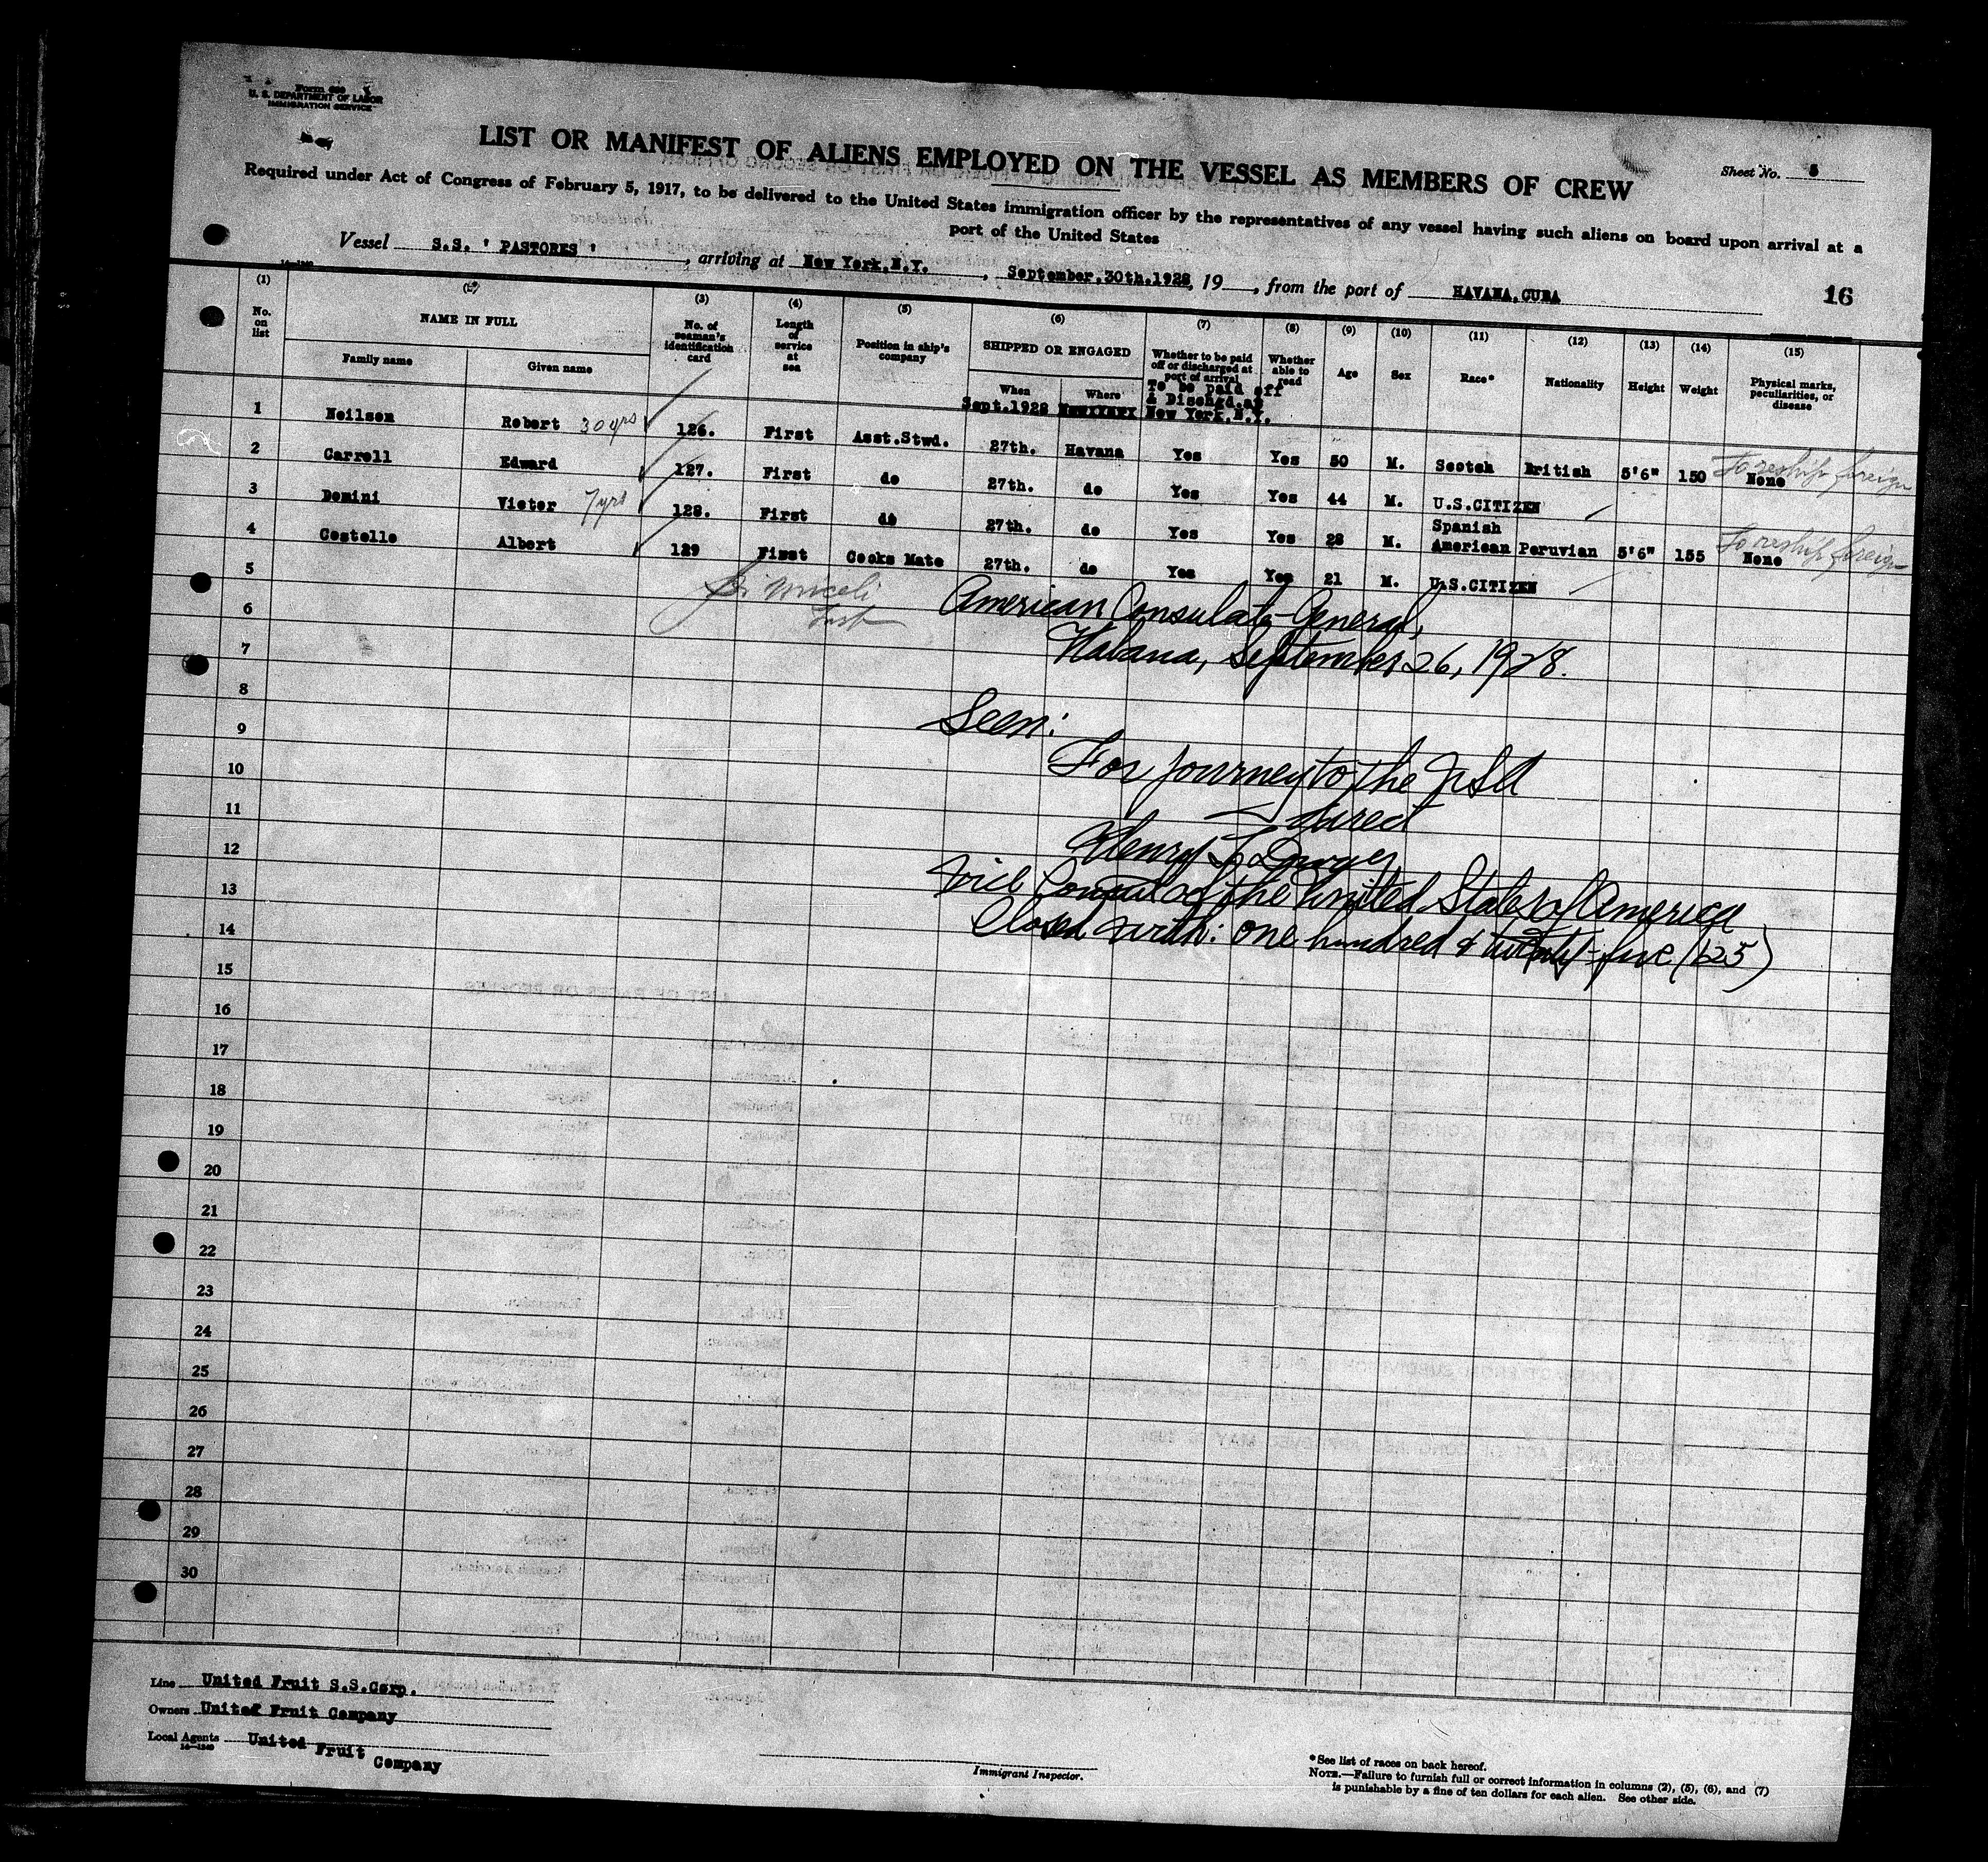 Form 680
U. S. DEPARTMENT OF LABOR
IMMIGRATION SERVICE
Sheet No. 5
LIST OR MANIFEST OF ALIENS EMPLOYED ON THE VESSEL AS MEMBERS OF CREW
Required under Act of Congress of February 5, 1917, to be delivered to the United States immigration officer by the representatives of any vessel having such aliens on board upon arrival at a
port of the United States
Vessel S.S. ' PASTORES ', arriving at New York,N.Y., September,30th.1928, 19 , from the port of HAVANA,CUBA
16
(1) (2) (3) (4) (5) (6) (7) (8) (9) (10) (11) (12) (13) (14) (15)
No. on list
NAME IN FULL
Family name
Given name
No. of seaman's identification card
Length of service at sea
Position in ship's company
SHIPPED OR ENGAGED
When
Where
Whether to be paid off or discharged at port of arrival
Whether able to read
Age
Sex
Race*
Nationality
Height
Weight
Physical marks, peculiarities, or disease
Sept.1928 To be paid off & Dischgd.at New York.N.Y.
1 Neilson Robert 30 yrs 126. First Asst.Stwd. 27th. Havana Yes Yes 50 M. Scotch British 5'6" 150 None To reship foreign
2 Carroll Edward 127. First do 27th. do Yes Yes 44 M. U.S.CITIZEN
3 Domini Victor 7 yrs 128. First do 27th. do Yes Yes 28 M. Spanish American Peruvian 5'6" 155 None To reship foreign
4 Costello Albert 129 First Cooks Mate 27th. do Yes Yes 21 M. U.S.CITIZEN
5
6
7
8
9
10
11
12
13
14
15
16
17
18
19
20
21
22
23
24
25
26
27
28
29
30
American Consulate-General,
Habana, September 26, 1928.
Seen:
For journey to the USA
direct
Henry T. Dwyer
Vice Consul of the United States of America
Closed with: one hundred & twenty-five (125)
Line United Fruit S.S.Corp.
Owners United Fruit Company
Local Agents United Fruit Company
Immigrant Inspector.
*See list of races on back hereof.
NOTE.—Failure to furnish full or correct information in columns (2), (5), (6), and (7)
is punishable by a fine of ten dollars for each alien. See other side.